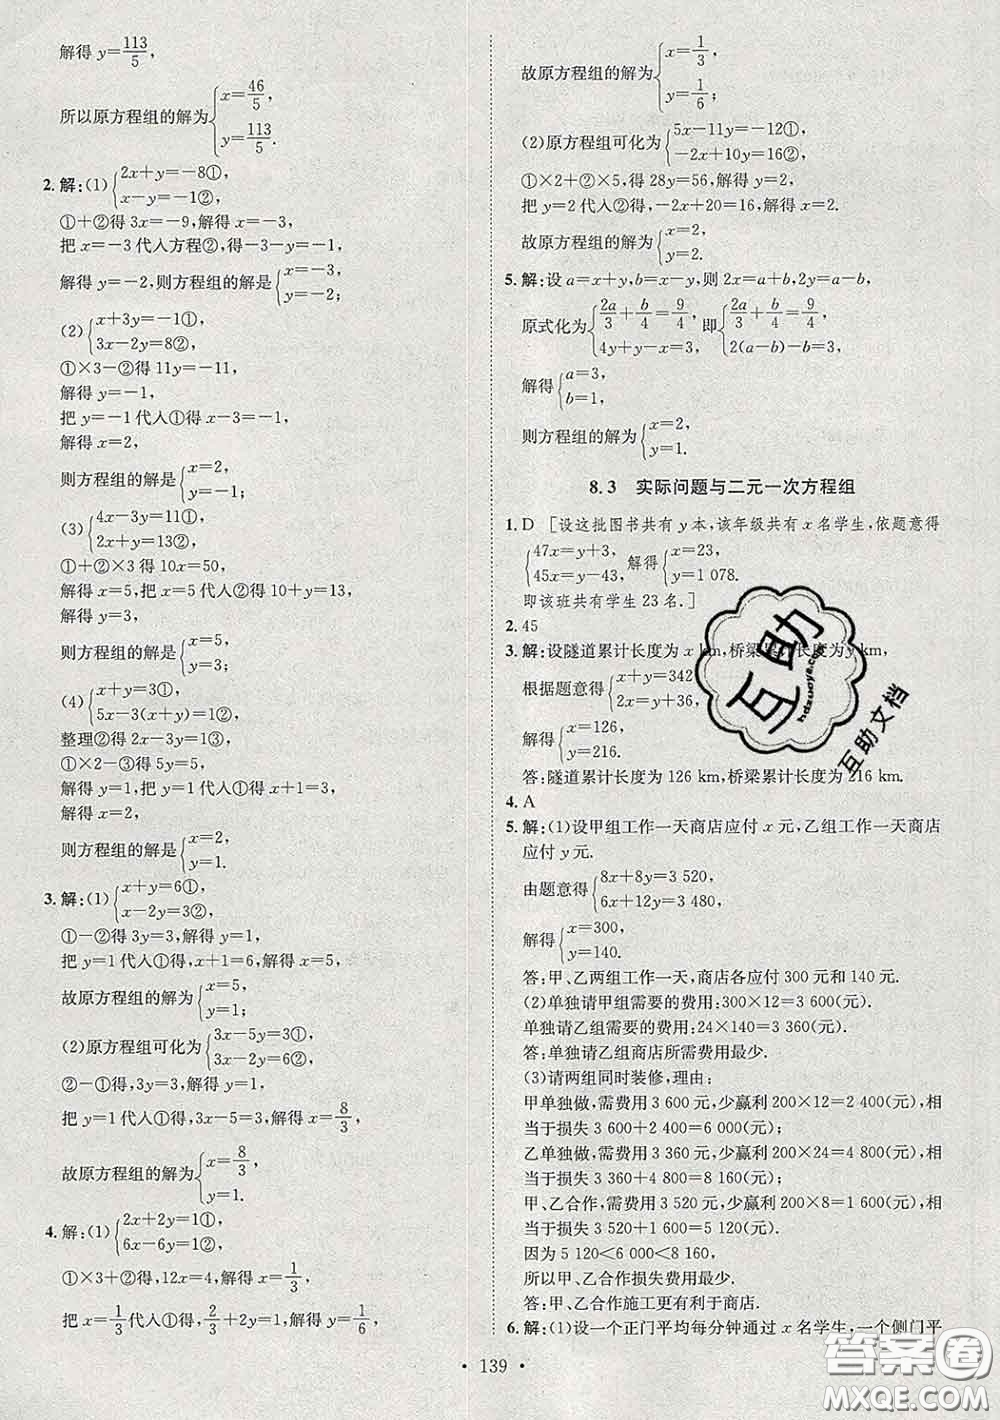 解得 y=113/5,
所以原方程组的解为{x=46/5, y=113/5.
2. 解:(1){2x+y=-8①, x-y=-1②,
①+②得 3x=-9,解得 x=-3,
把 x=-3 代入方程②,得-3-y=-1,
解得 y=-2,则方程组的解是{x=-3, y=-2;
(2){x+3y=-1①, 3x-2y=8②,
①×3-②得 11y=-11,
解得 y=-1,
把 y=-1 代入①得 x-3=-1,
解得 x=2,
则方程组的解是{x=2, y=-1;
(3){4x-3y=11①, 2x+y=13②,
①+②×3 得 10x=50,
解得 x=5,把 x=5 代入②得 10+y=13,
解得 y=3,
则方程组的解是{x=5, y=3;
(4){x+y=3①, 5x-3(x+y)=1②,
整理②得 2x-3y=1③,
①×2-③得 5y=5,
解得 y=1,把 y=1 代入①得 x+1=3,
解得 x=2,
则方程组的解是{x=2, y=1.
3. 解:(1){x+y=6①, x-2y=3②,
①-②得 3y=3,解得 y=1,
把 y=1 代入①得,x+1=6,解得 x=5,
故原方程组的解为{x=5, y=1;
(2)原方程组可化为{3x-5y=3①, 3x-2y=6②,
②-①得,3y=3,解得 y=1,
把 y=1 代入①得,3x-5=3,解得 x=8/3,
故原方程组的解为{x=8/3, y=1.
4. 解:(1){2x+2y=1①, 6x-6y=1②,
①×3+②得,12x=4,解得 x=1/3,
把 x=1/3代入①得,2/3+2y=1,解得 y=1/6,
故原方程组的解为{x=1/3, y=1/6;
(2)原方程组可化为{5x-11y=-12①, -2x+10y=16②,
①×2+②×5,得 28y=56,解得 y=2.
把 y=2 代入②得,-2x+20=16,解得 x=2.
故原方程组的解为{x=2, y=2.
5. 解:设 a=x+y,b=x-y,则 2x=a+b,2y=a-b,
原式化为{2a/3+b/4=9/4, 4y+y-x=3, 即{2a/3+b/4=9/4, 2(a-b)-b=3,
解得{a=3, b=1,
则方程组的解为{x=2, y=1.
8.3 实际问题与二元一次方程组
1. D [设这批图书共有 y 本,该年级共有 x 名学生,依题意得
{47x=y+3, 45x=y-43, 解得{x=23, y=1 078.
即该班共有学生 23 名.]
2. 45
3. 解:设隧道累计长度为 x km,桥梁累计长度为 y km,
根据题意得{x+y=342, 2x=y+36,
解得{x=126, y=216.
答:隧道累计长度为 126 km,桥梁累计长度为 216 km.
4. A
5. 解:(1)设甲组工作一天商店应付 x 元,乙组工作一天商店
应付 y 元.
由题意得{8x+8y=3 520, 6x+12y=3 480,
解得{x=300, y=140.
答:甲、乙两组工作一天,商店各应付 300 元和 140 元.
(2)单独请甲组需要的费用:300×12=3 600(元).
单独请乙组需要的费用:24×140=3 360(元).
答:单独请乙组商店所需费用最少.
(3)请两组同时装修,理由:
甲单独做,需费用 3 600 元,少赢利 200×12=2 400(元),相
当于损失 3 600+2 400=6 000(元);
乙单独做,需费用 3 360 元,少赢利 200×24=4 800(元),相
当于损失 3 360+4 800=8 160(元);
甲、乙合作,需费用 3 520 元,少赢利 200×8=1 600(元),相
当于损失 3 520+1 600=5 120(元);
因为 5 120<6 000<8 160,
所以甲、乙合作损失费用最少.
答:甲、乙合作施工更有利于商店.
6. 解:(1)设一个正门平均每分钟通过 x 名学生,一个侧门平
• 139 •
互助
hdzuoye.com
互助文档
答案圈
MXQE.COM